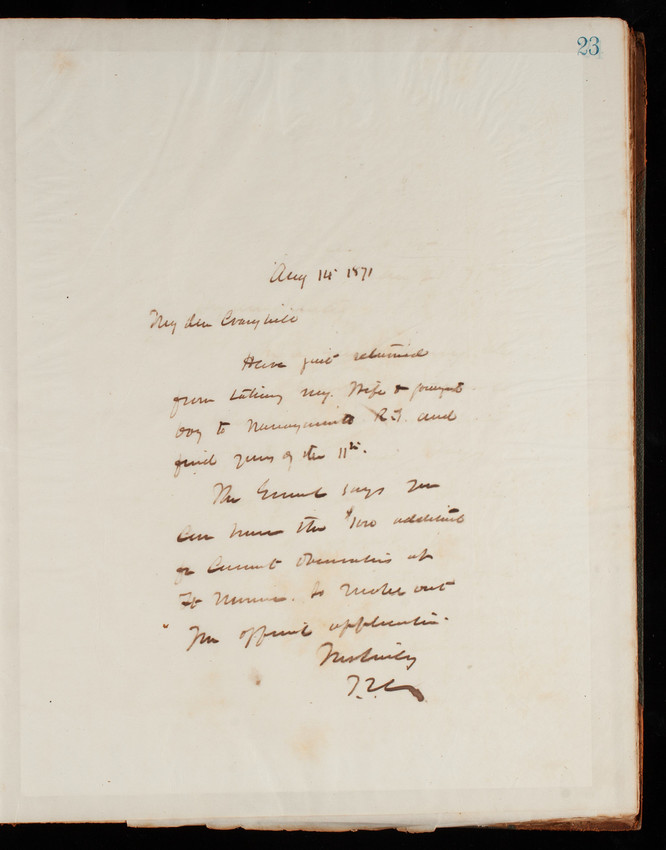 23
Aug 14 1871
My dear Craighill
Have just returned
from taking my Wife & youngest
boy to Narragansett R.I. and
find yours of the 11th.
The General says you
can have the $100 additional
for Current observations at
Ft Monroe. So make out
your official application.
Yours truly
T.L.C.